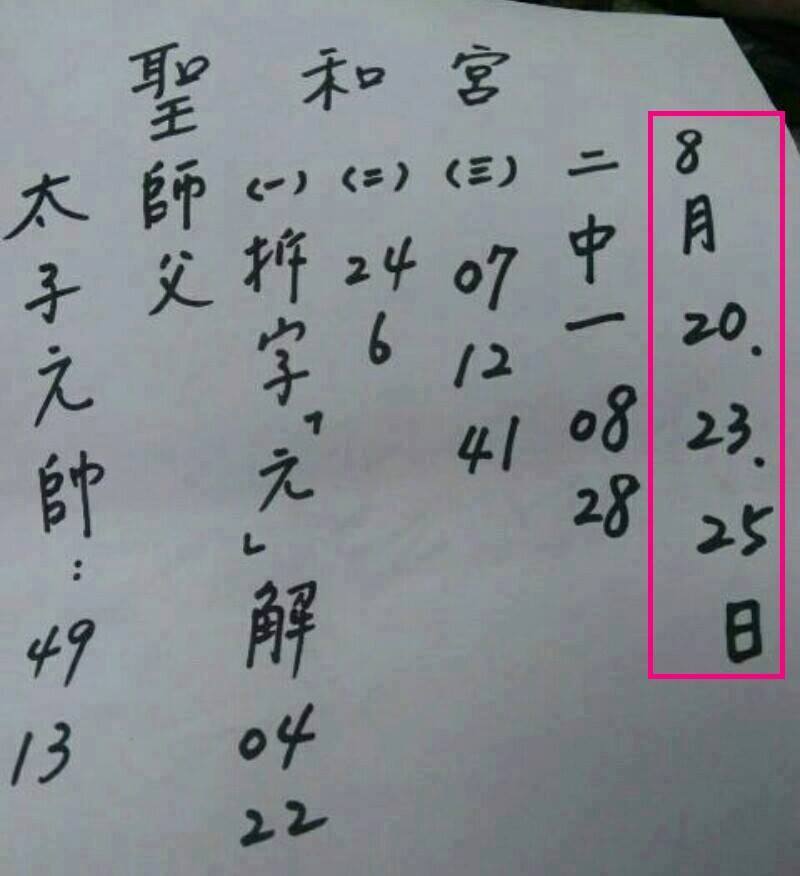 聖和宮
8月20.23.25日
二中一 08 28
(三) 07 12 41
(二) 24 6
(一) 拆字「元」解 04 22
師父
太子元帥: 49 13